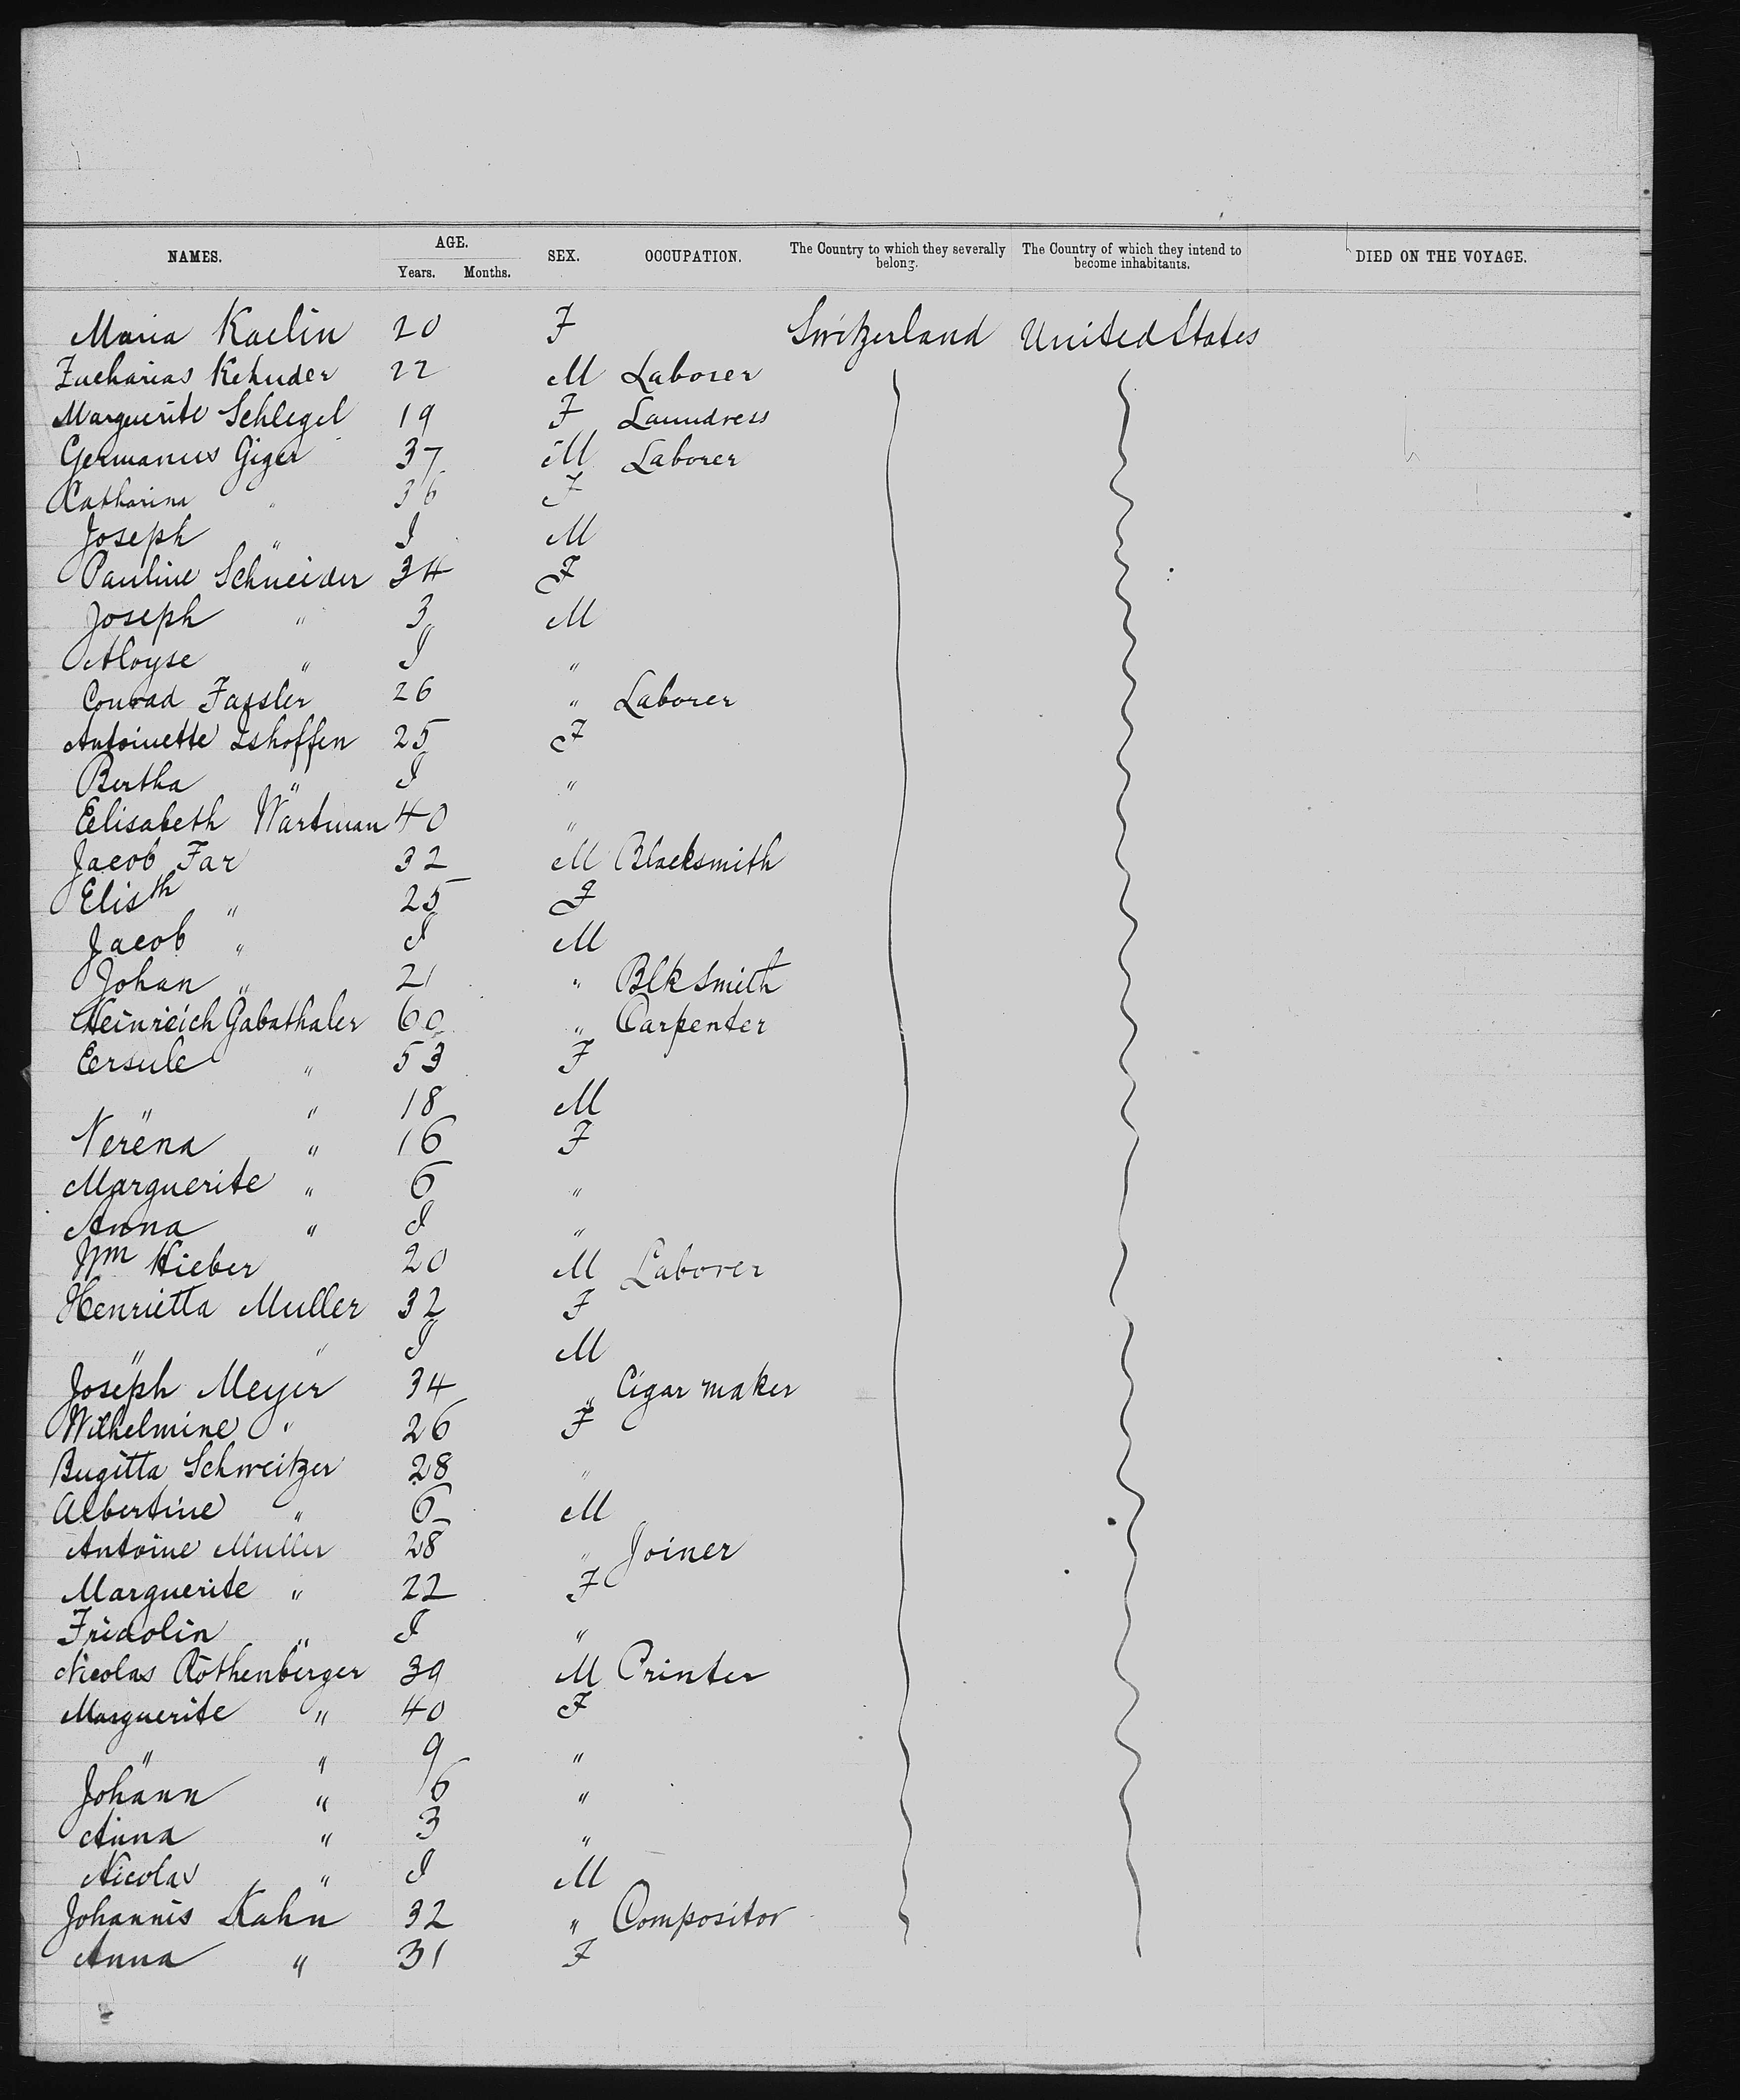 NAMES. AGE. Years. Months. SEX. OCCUPATION. The Country to which they severally belong. The Country of which they intend to become inhabitants. DIED ON THE VOYAGE.
Maria Kaelin 20 F Switzerland United States
Zacharias Kehuder 22 M Laborer
Marguerite Schlegel 19 F Laundress
Germanus Giger 37 M Laborer
Catharina " 36 F
Joseph " I M
Pauline Schneider 34 F
Joseph " 3 M
Aloyse " I "
Conrad Fassler 26 " Laborer
Antoinette Ishoffen 25 F
Bertha " I "
Eelisabeth Wartman 40 "
Jacob Far 32 M Blacksmith
Elisth " 25 F
Jacob " I M
Johan " 21 " Blk Smith
Heinreich Gabathaler 60 " Carpenter
Eersule " 53 F
" " 18 M
Nerena " 16 F
Marguerite " 6 "
Anna " I "
Wm Hieber 20 M Laborer
Henrietta Muller 32 F
" " I M
Joseph Meyer 34 " Cigar maker
Wilhelmine " 26 F
Bugitta Schweitzer 28 "
Albertine " 6 M
Antoine Muller 28 " Joiner
Marguerite " 22 F
Fridolin " I "
Nicolas Rothenberger 39 M Printer
Marguerite " 40 F
" " 9 "
Johann " 6 "
Anna " 3 "
Nicolas " I M
Johannis Kahn 32 " Compositor
Anna " 31 F